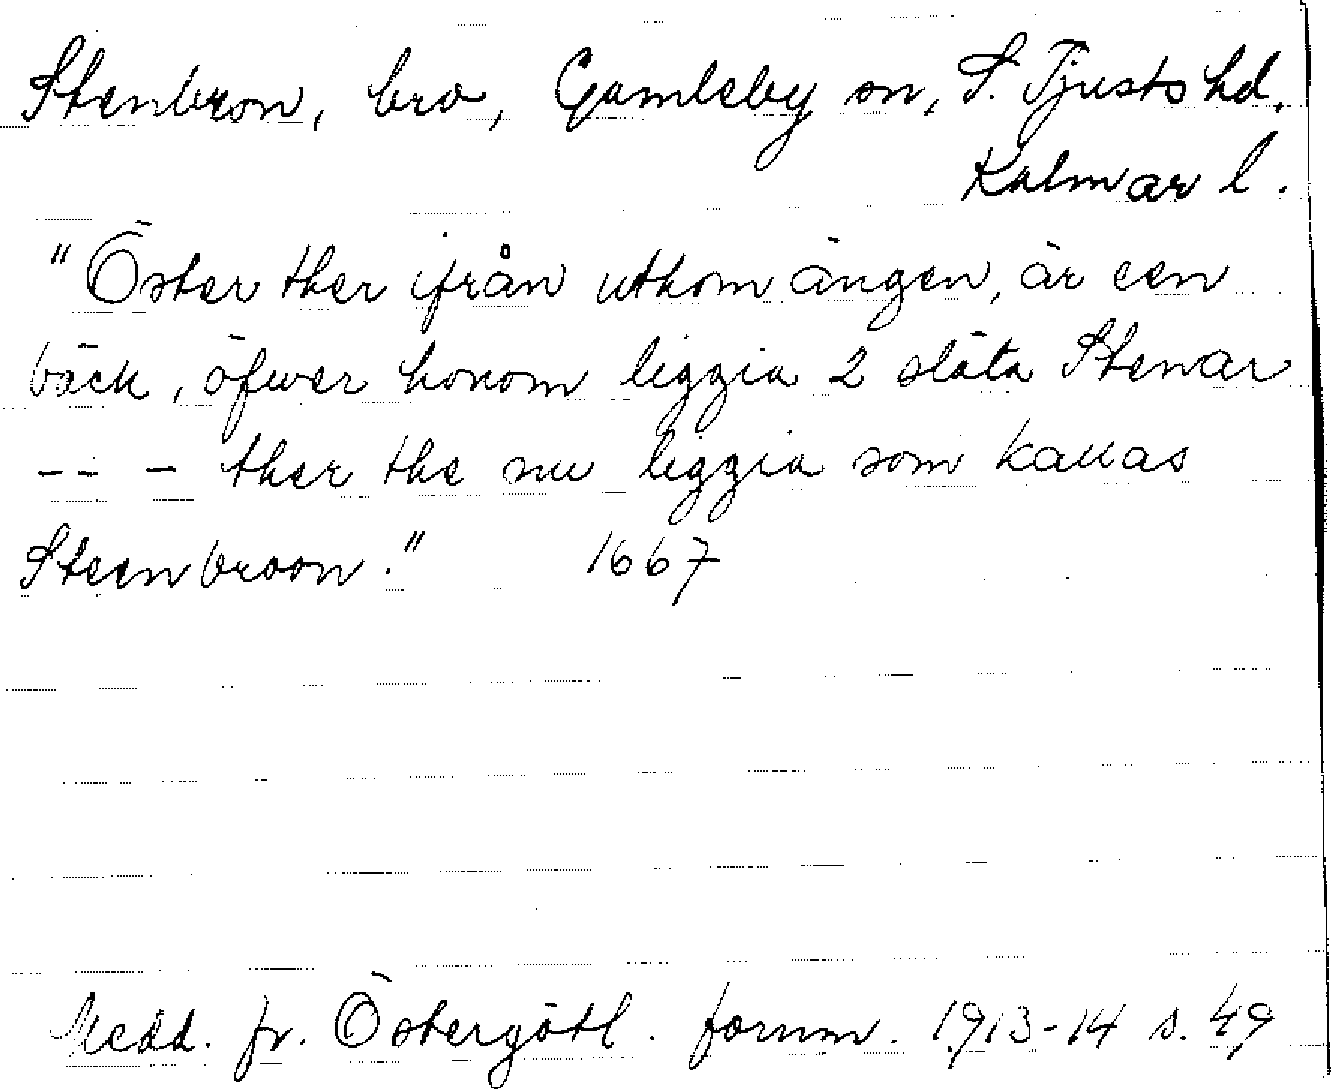 Stenbron, bro, Gamleby sn, S. Tjusts hd.
Kalmar l.
"Öster ther ifrån uthom ängen, är een
bäck, öfwer honom liggia 2 släta Stenar
--- ther the nu liggia som kallas
Steenbroon." 1667
Medd. fr. Östergötl. fornm. 1913-14 s. 49